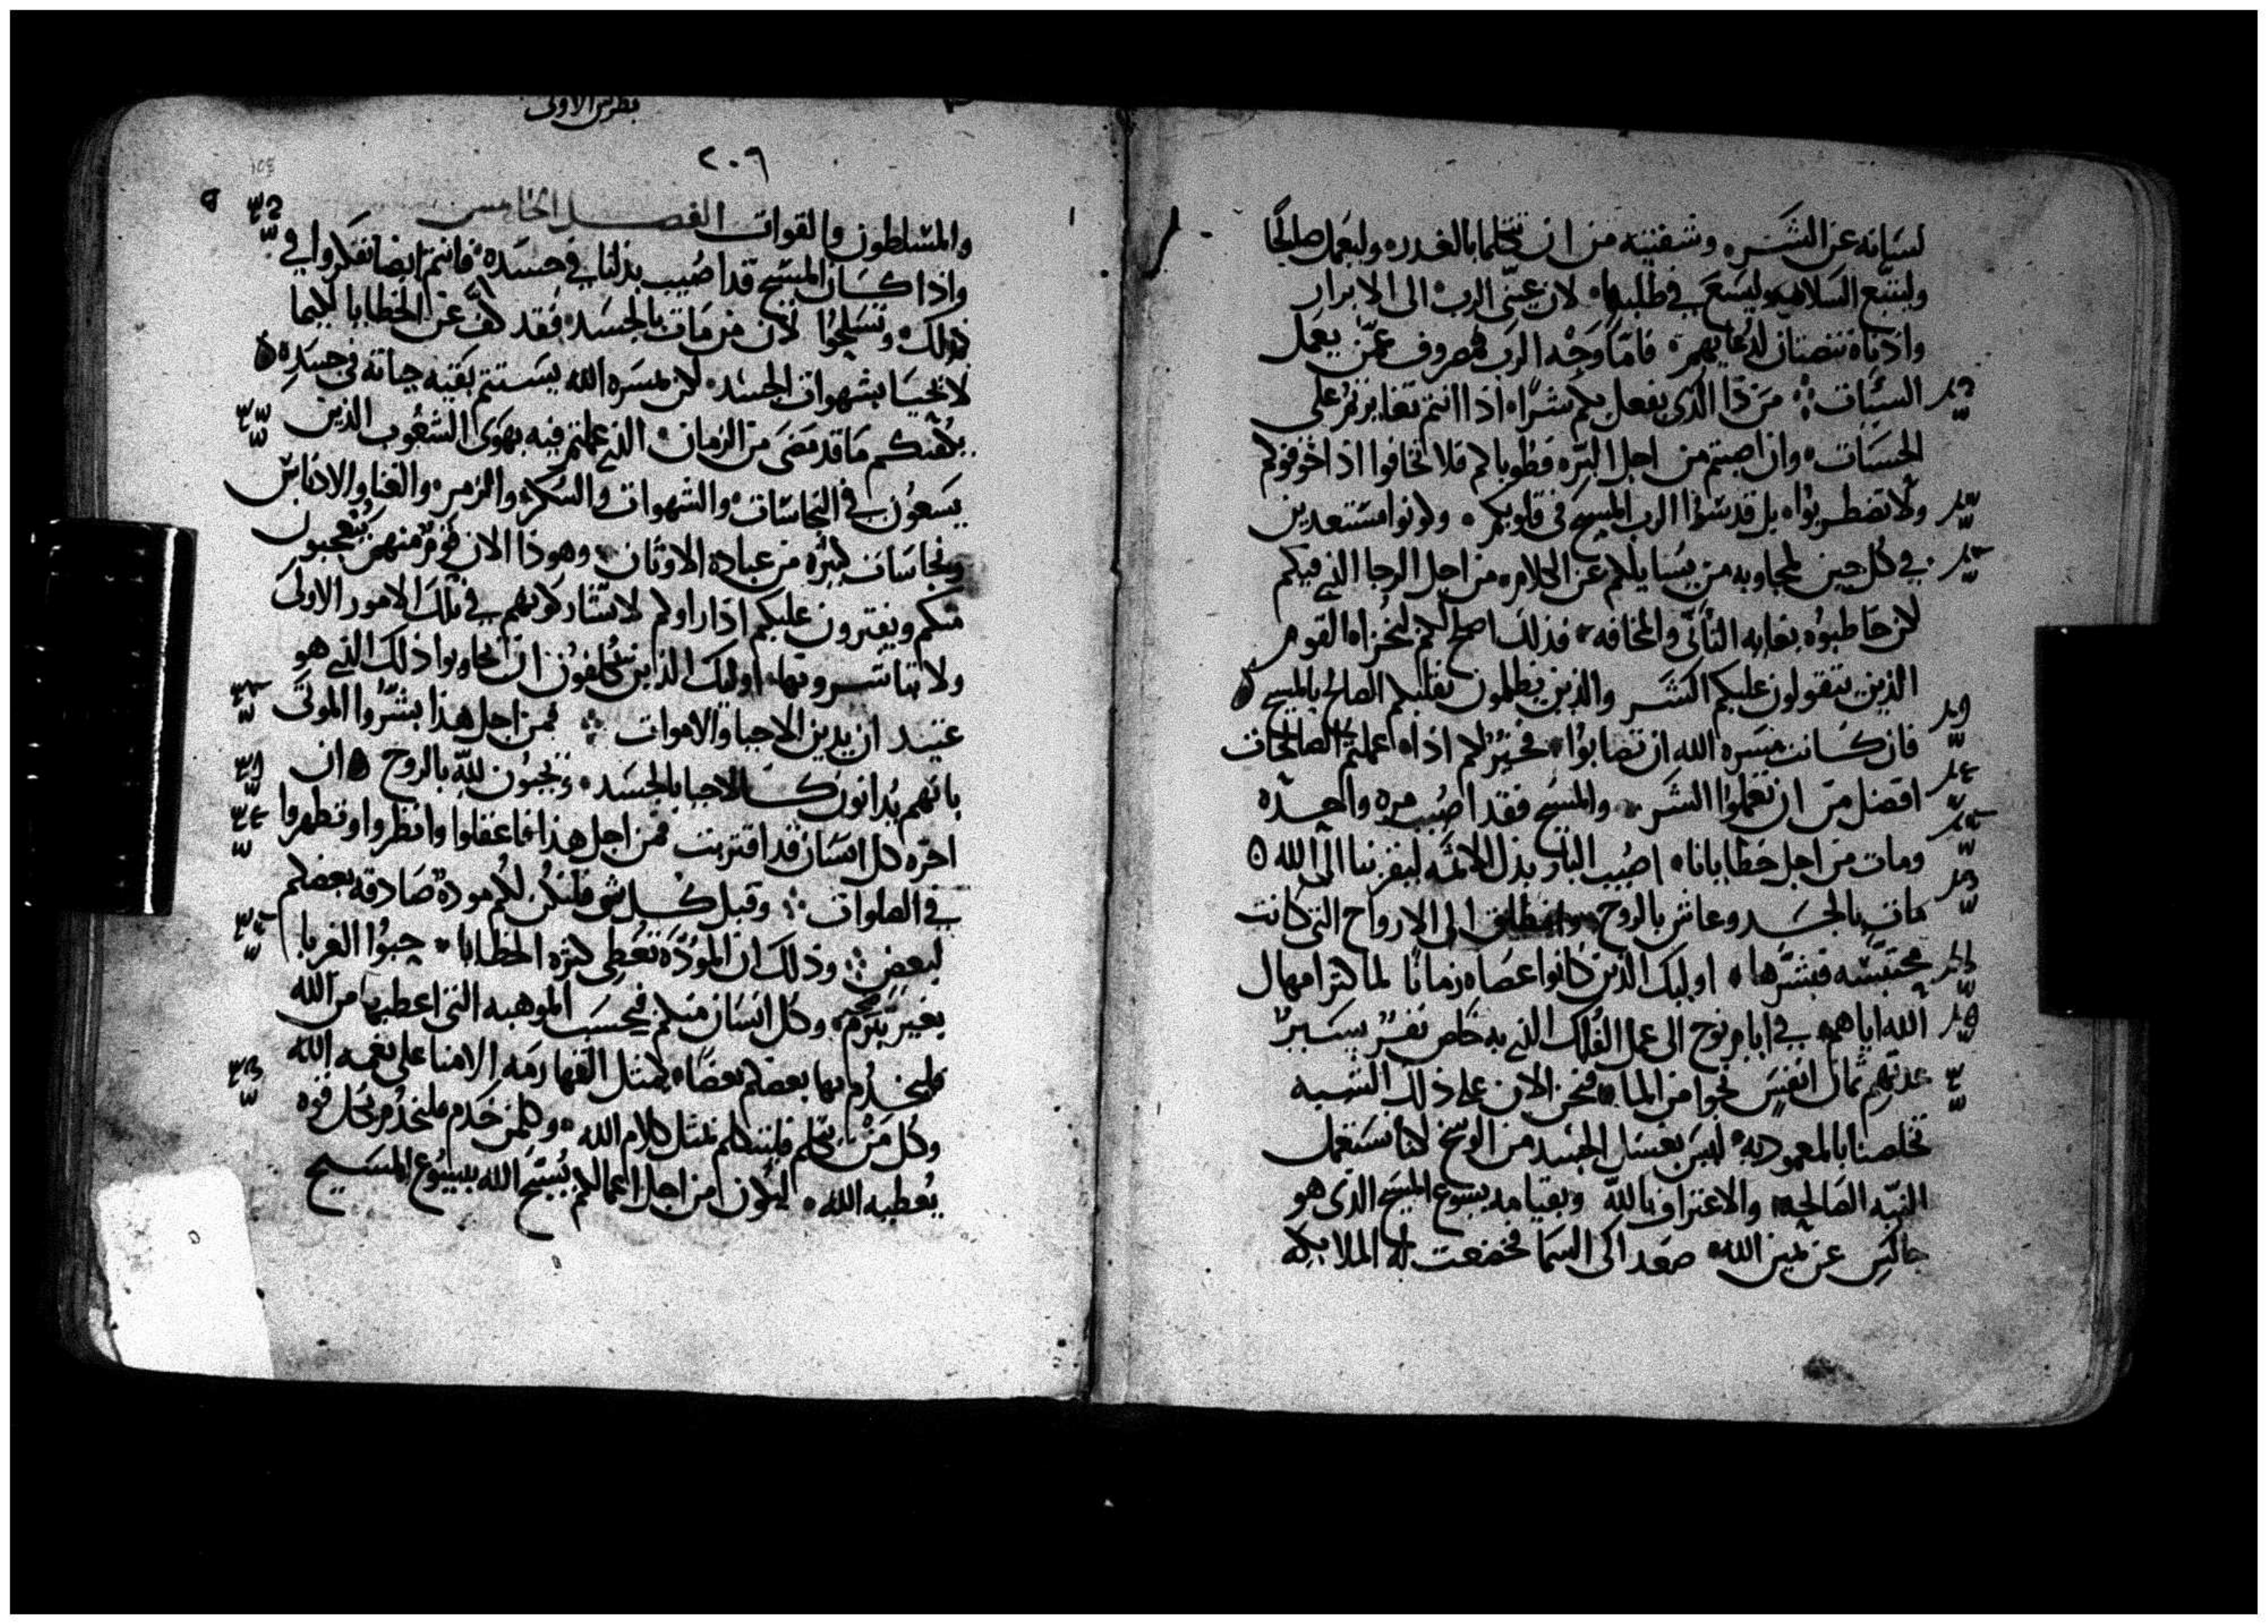 لسانه عن الشر وشفتيه من ان تتكلما بالغدر وليعمل صالحًا
وليتبع السلامه وليسع في طلبها لان عيني الرب الى الابرار
واذناه تنصتان لدعايهم فاما وجه الرب فمصروف عمن يعمل
السيات من ذا الذي يفعل بكم شرًا اذا انتم تغايرتم على
الحسنات وان اصبتم من اجل البر فطوباكم فلا تخافوا اذا خوفوكم
ولا تضطربوا بل قدسوا الرب المسيح في قلوبكم وكونوا مستعدين
في كل حين لمجاوبه من يسايلكم عن الكلام من اجل الرجا الذي فيكم
لكن خاطبوه بغايه التأني والمخافه فذلك اصلح لكم ليخزا القوم
الذين يتقولون عليكم الشر والذين يظلمون تقلبكم الصالح بالمسيح
فان كانت مسره الله ان تصابوا فخير لكم اذا عملتم الصالحات
افضل من ان تعملوا الشر والمسيح فقد اصيب مره واحده
ومات من اجل خطايانا اصيب البار بدل الاثمه ليقربنا الى الله
مات بالجسد وعاش بالروح وانطلق الى الارواح التي كانت
محتبسه فبشرها اوليك الذين كانوا عصاه زمانًا لما كثر امهال
الله اياهم في ايام نوح الى عمل الفلك الذي به خلص نفر يسير
عدتهم ثمان انفس نجوا من الما فنحن الان على ذلك الشبه
تخلصنا بالمعموديه ليس بغسل الجسد من الوسخ لكنا نستعمل
النيه الصالحه والاعتراف بالله وبقيامه يسوع المسيح الذي هو
جالس عن يمين الله صعد الى السما فخضعت له الملايكه
بطرس الاولى
٢٠٦
والمسلطون والقوات الفصل الخامس
واذا كان المسيح قد اصيب بدلنا في جسده فانتم ايضا تفكروا في
ذلك وتسلحوا لان من مات بالجسد فقد كف عن الخطايا لكيما
لا تحيا بشهوات الجسد لكن بمسره الله يستتم بقيه حياته في جسده
يكفيكم ما قد مضى من الزمان الذي عملتم فيه بهوى الشعوب الذين
يسعون في النجاسات والشهوات والسكر والزمر والغنا والادناس
ونجاسات كثيره من عباده الاوثان وهوذا الان قوم منهم يتعجبون
منكم ويفترون عليكم اذا راوكم لا تشاركونهم في تلك الامور الاولى
ولا تباشرونها اوليك الذين يتكلفون ان يجاوبوا ذلك الذي هو
عتيد ان يدين الاحيا والاموات فمن اجل هذا بشروا الموتى
بانهم يدانون كالاحيا بالجسد ويحيون لله بالروح ان
اخره كل انسان قد اقتربت فمن اجل هذا فاعقلوا وانظروا وتطهروا
في الصلوات وقبل كل شي فلتكن لكم مودة صادقه بعضكم
لبعض وذلك ان المودة تغطي كثره الخطايا حبوا الغربا
بغير تبرم وكل انسان منكم فبحسب الموهبه التي اعطيها من الله
فليخدم بها بعضكم بعضًا كمثل القهارمه الامنا على نعمه الله
وكل من تكلم فليتكلم بمثل كلام الله وكل من خدم فليخدم بكل قوه
يعطيه الله ليكون من اجل اعمالكم يسبح الله بيسوع المسيح